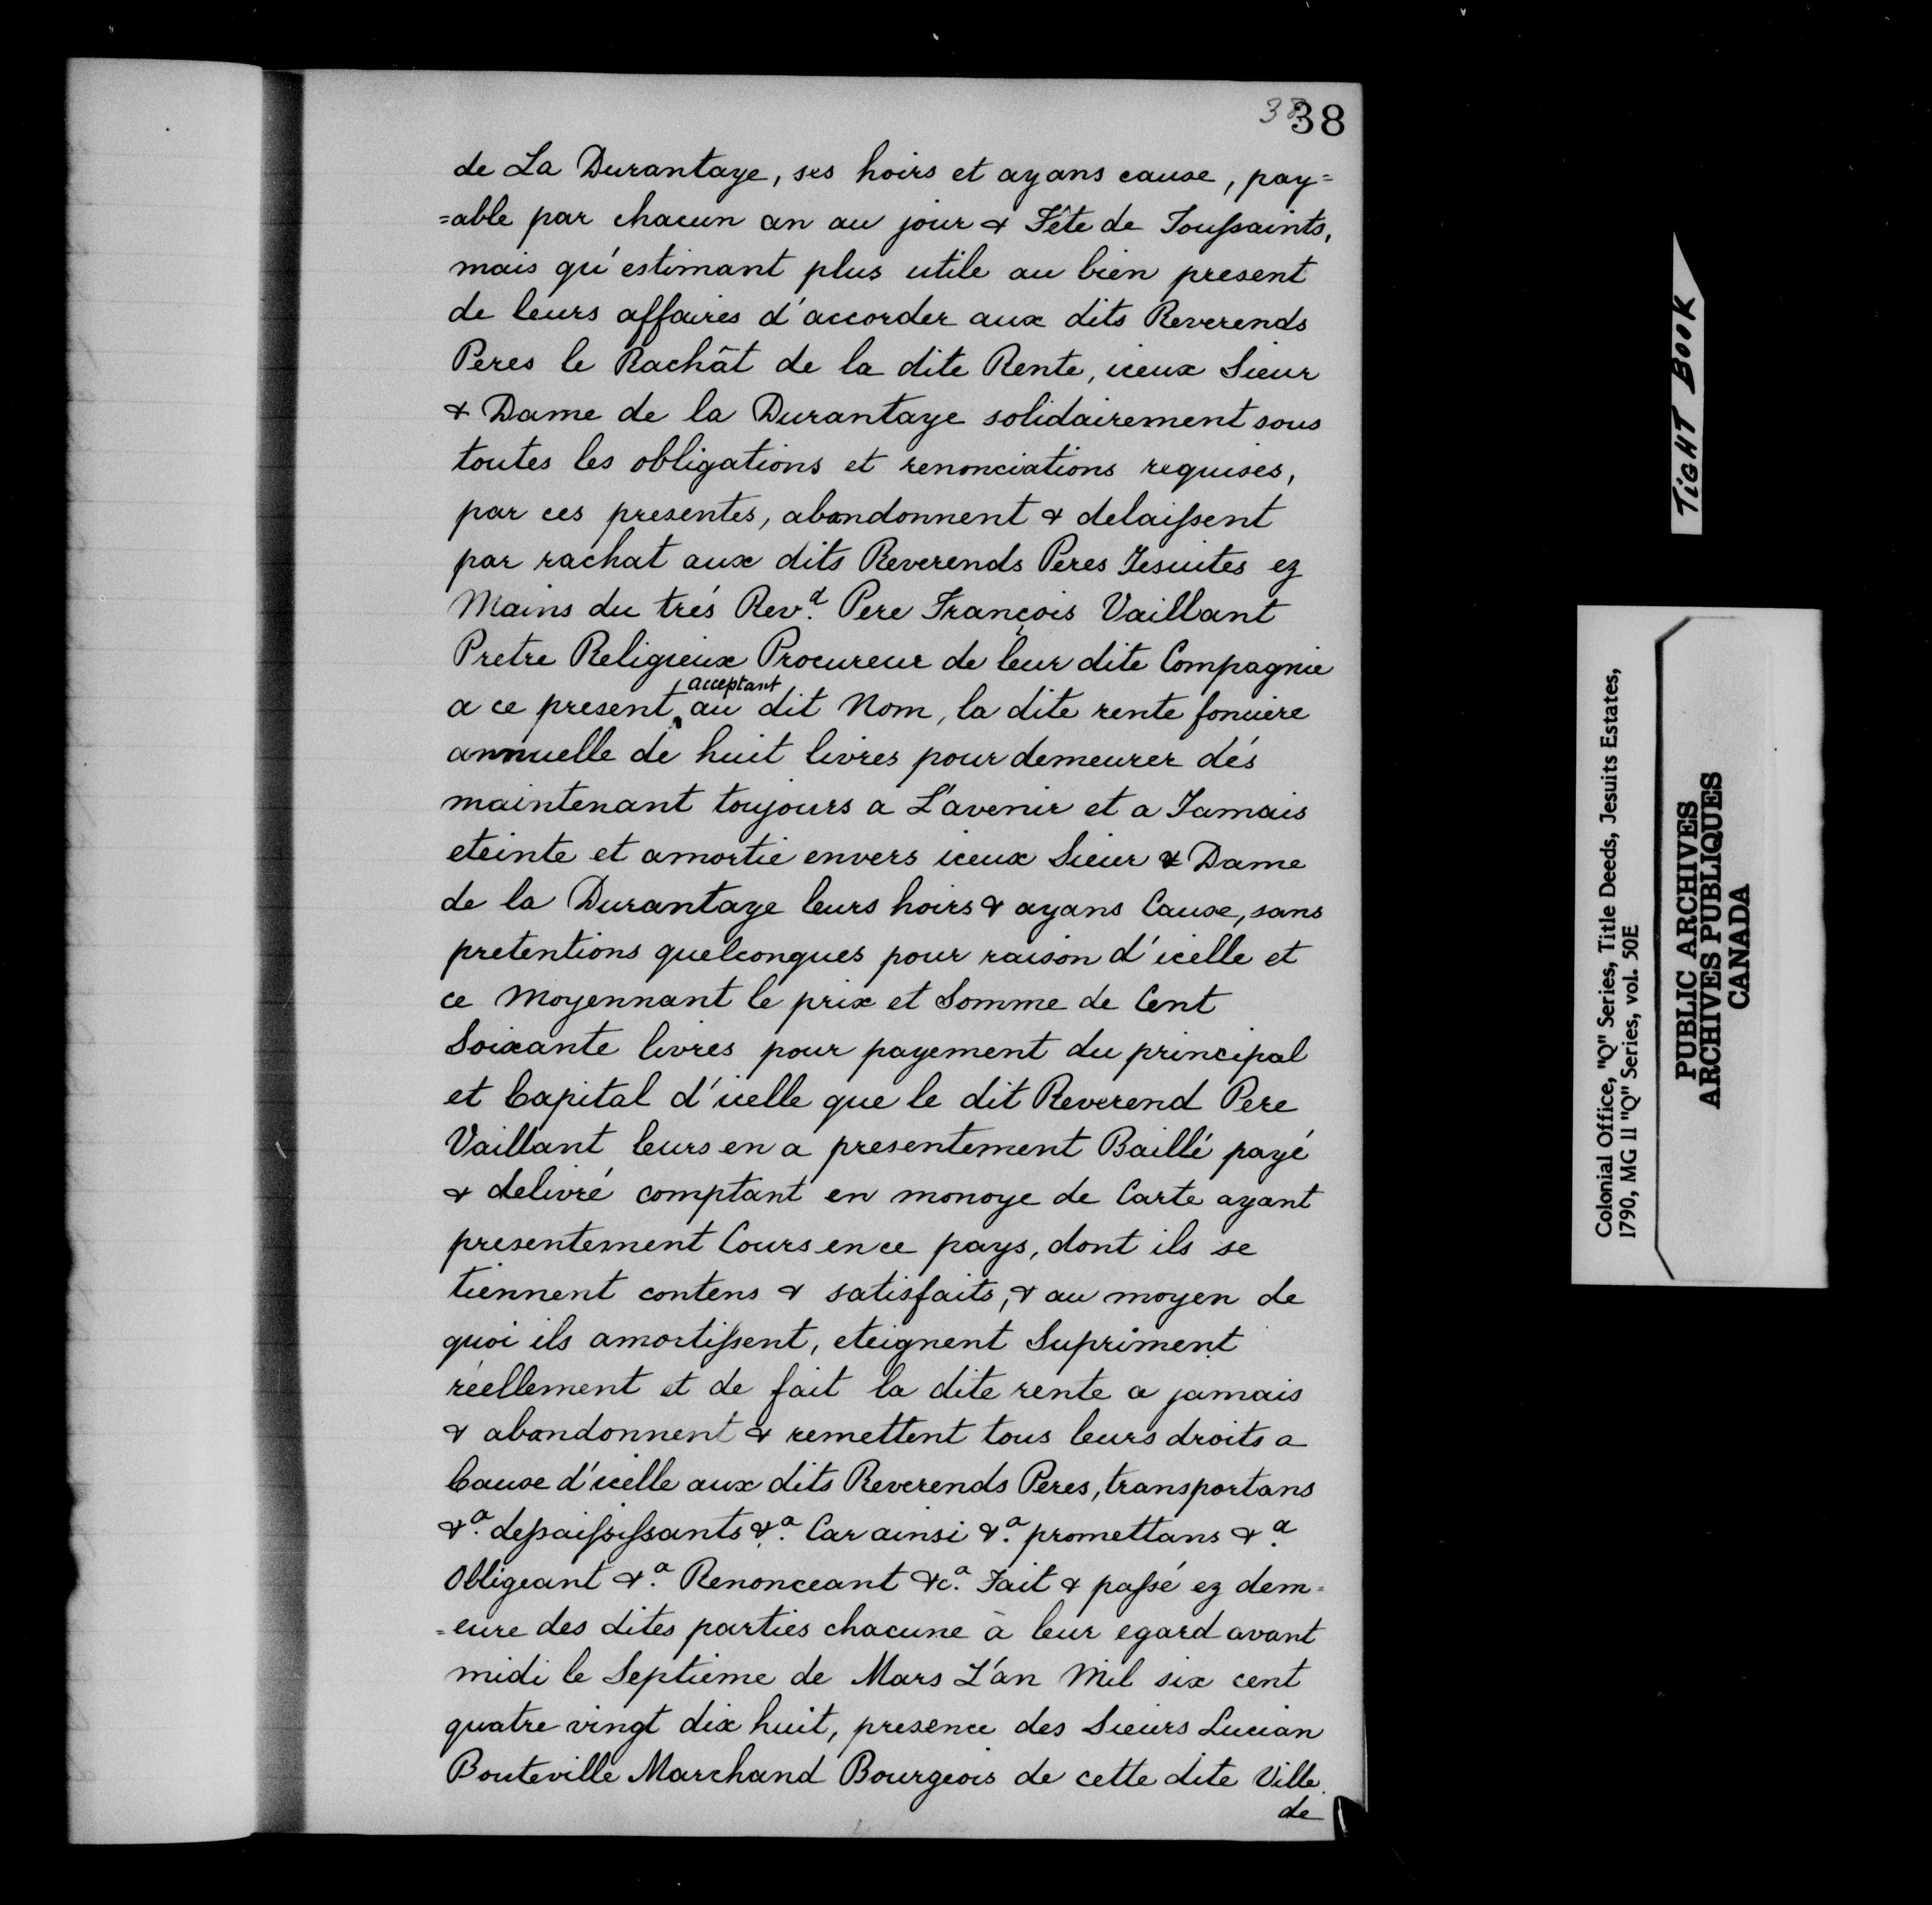 38 38
de La Durantaye, ses hoirs et ayans cause, pay=
=able par chacun an au jour & Fête de Toussaints,
mais qu'estimant plus utile au bien present
de leurs affaires d'accorder aux dits Reverends
Peres le Rachât de la dite Rente, iceux Sieur
& Dame de la Durantaye solidairement sous
toutes les obligations et renonciations requises,
par ces presentes, abandonnent & delaissent
par rachat aux dits Reverends Peres Jesuites ez
Mains du trés Revd. Pere François Vaillant
Pretre Religieux Procureur de leur dite Compagnie
a ce present acceptant au dit Nom, la dite rente fonciere
annuelle de huit livres pour demeurer dés
maintenant toujours a L'avenir et a Jamais
eteinte et amortie envers iceux Sieur & Dame
de la Durantaye leurs hoirs & ayans Cause, sans
pretentions quelconques pour raison d'icelle et
ce Moyennant le prix et Somme de Cent
Soixante livres pour payement du principal
et Capital d'icelle que le dit Reverend Pere
Vaillant leurs en a presentement Baillé payé
& delivré comptant en monoye de Carte ayant
presentement Cours en ce pays, dont ils se
tiennent contens & satisfaits, & au moyen de
quoi ils amortissent, eteignent Supriment
réellement et de fait la dite rente a jamais
& abandonnent & remettent tous leurs droits a
Cause d'icelle aux dits Reverends Peres, transportans
&a. dessaisissants &a. Car ainsi &a. promettans &a.
Obligeant &a. Renonceant &ca. Fait & passé ez dem=
=eure des dites parties chacune à leur egard avant
midi le Septieme de Mars L'an Mil six cent
quatre vingt dix huit, presence des Sieurs Lucian
Bouteville Marchand Bourgeois de cette dite Ville
de
TIGHT BOOK
Colonial Office, "Q" Series, Title Deeds, Jesuits Estates,
1790, MG 11 "Q" Series, vol. 50E
PUBLIC ARCHIVES
ARCHIVES PUBLIQUES
CANADA